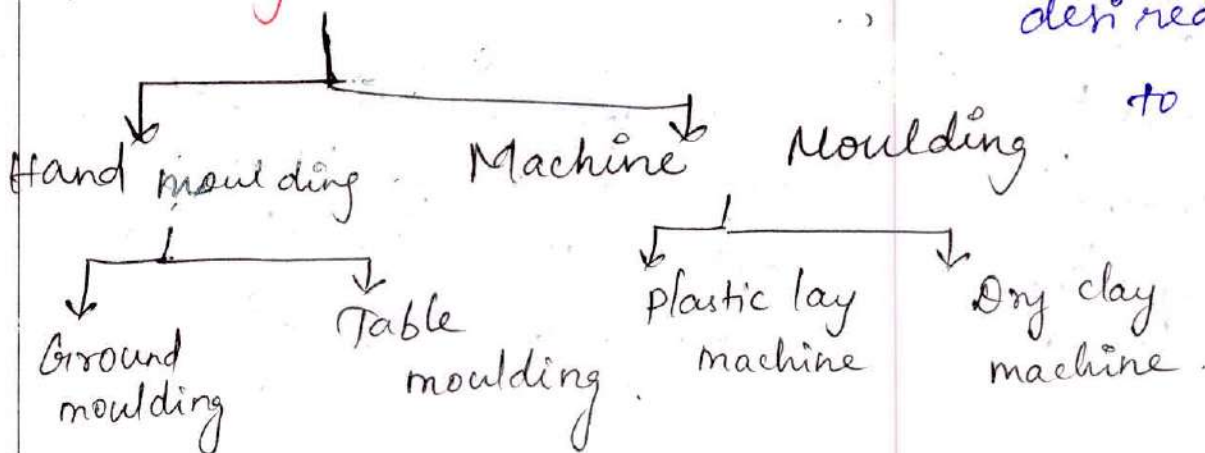 desired
to
Hand moulding. Machine Moulding.
Ground moulding
Table moulding.
Plastic lay machine
Dry clay machine.